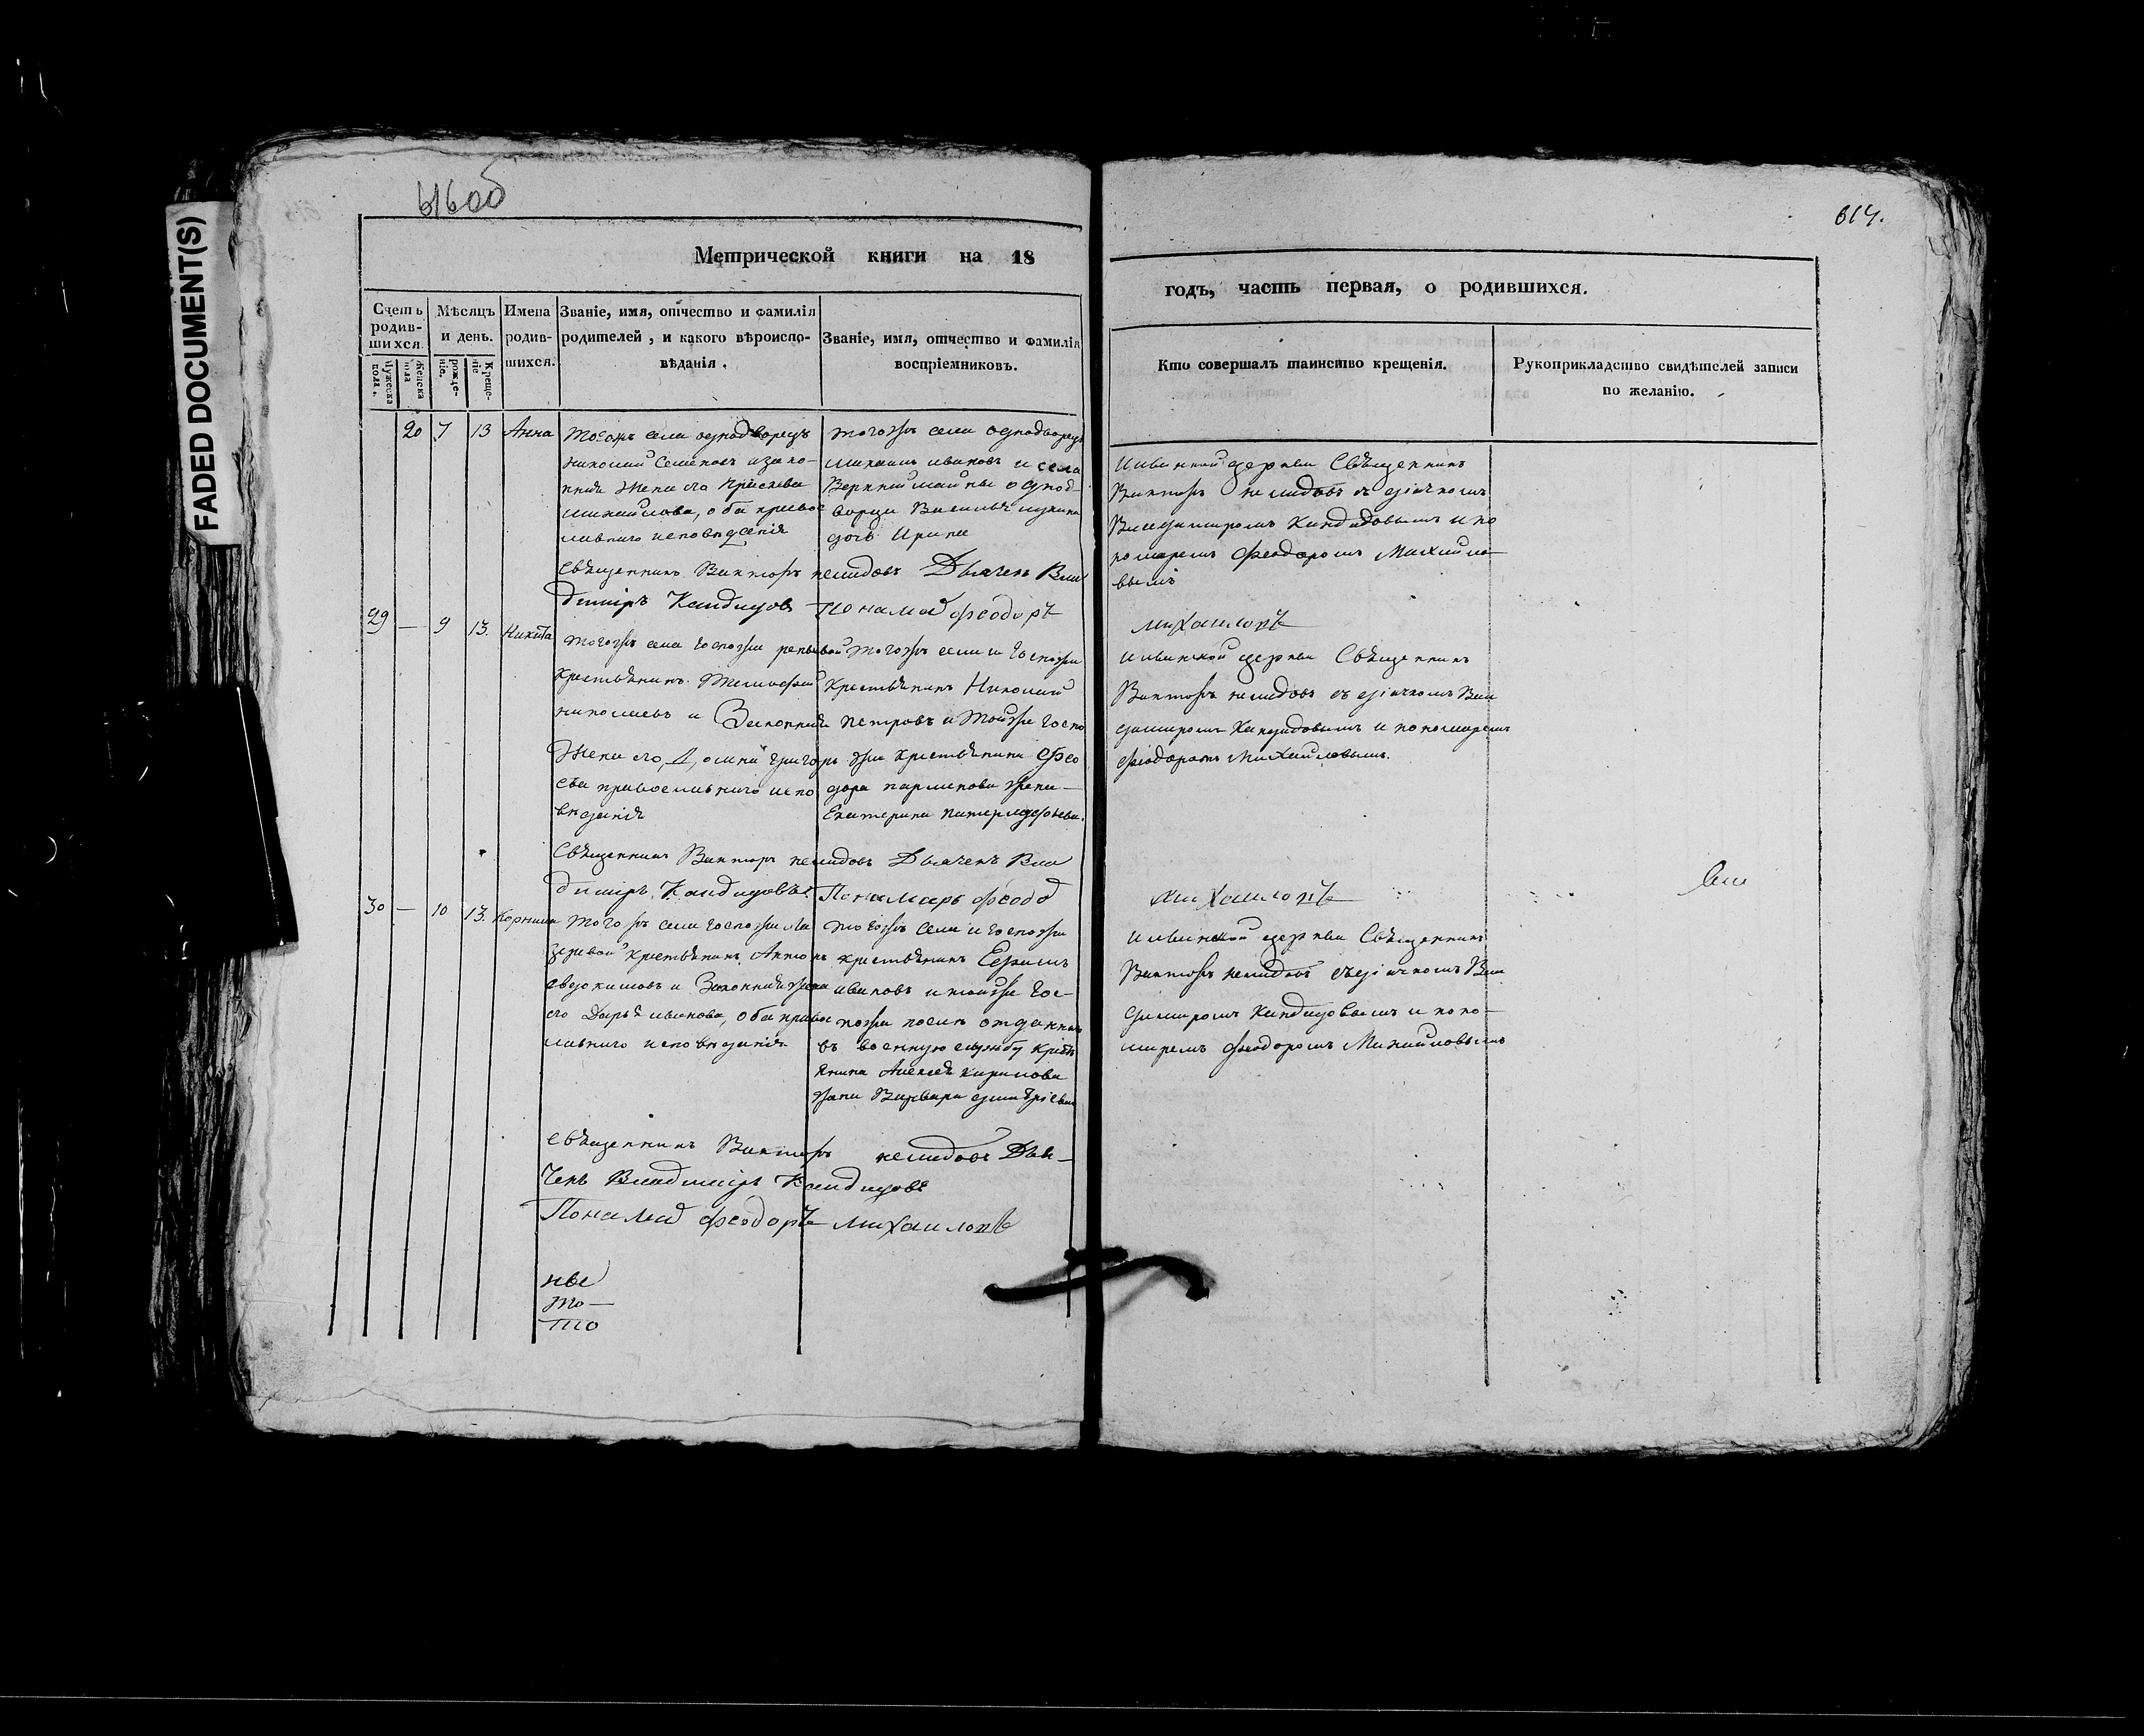 FADED DOCUMENT(S)
614.
Метрической книги на 18
годъ, часть первая, о родившихся.
Счетъ родившихся.
Мужеска пола.
Женска пола
Мѣсяцъ и день.
рожденіе.
Крещеніе
Имена родившихся.
Званіе, имя, отчество и фамилія
родителей, и какого вѣроиспо-
вѣданія.
Званіе, имя, отчество и фамилія
воспріемниковъ.
Кто совершалъ таинство крещенія.
Рукоприкладство свидѣтелей записи
по желанію.
20 7 13 Анна
тогожъ села однодворецъ
николай Семеновъ изако-
нная жена его
михайлова, оба правос
лавнаго исповѣденія
тогожъ села однодворецъ
михаилъ ивановъ и села
однод
ворца Василья
дочь Ирина
церкви Священникъ
Викторъ нелидовъ съ дьячкомъ
Владимиромъ Кандидовымъ и по
номаремъ Феодоромъ Михайло-
вымъ
Священникъ Викторъ нелидовъ Дьяченъ Вла
димiръ Кандидовъ Понамаръ Феодоръ
михаиловъ
29 — 9 13. Никита
тогожъ села госпожи
крестьянинъ Тимофей
николаевъ и Законная
Жена его, Домна григорь
ева православнаго испо
вѣданія
тогожъ села и госпожи
крестьянинъ Николай
Петровъ и тойже госпо
жи крестьянина Фео
дора парменова жена—
Екатерина
церкви Священникъ
Викторъ нелидовъ съ дьячкомъ Вла
димиромъ Кандидовымъ и пономаремъ
Феодоромъ Михайловымъ.
Священникъ Викторъ нелидовъ Дьяченъ Вла
димiръ Кандидовъ Понамаръ Феодо
михаиловъ
30 — 10 13. Корнила
тогожъ села госпожи Ла
заревой крестьянинъ Антонъ
евдокимовъ и Законная жена
его Дарья иванова, оба правос
лавнаго исповѣданія
тогожъ села и госпожи
крестьянинъ Ефимъ
ивановъ и тойже гос-
пожи отданнаго
въ военную службу крест
янина Алексея кирилова
жена Варвара дмитріева
церкви Священникъ
Викторъ нелидовъ съ дьячкомъ Вла
димиромъ Кандидовымъ и поно-
маремъ Феодоромъ Михайловымъ
Священникъ Викторъ нелидовъ Дья-
ченъ Владимiръ Кандидовъ
Понамаръ Феодоръ михаиловъ